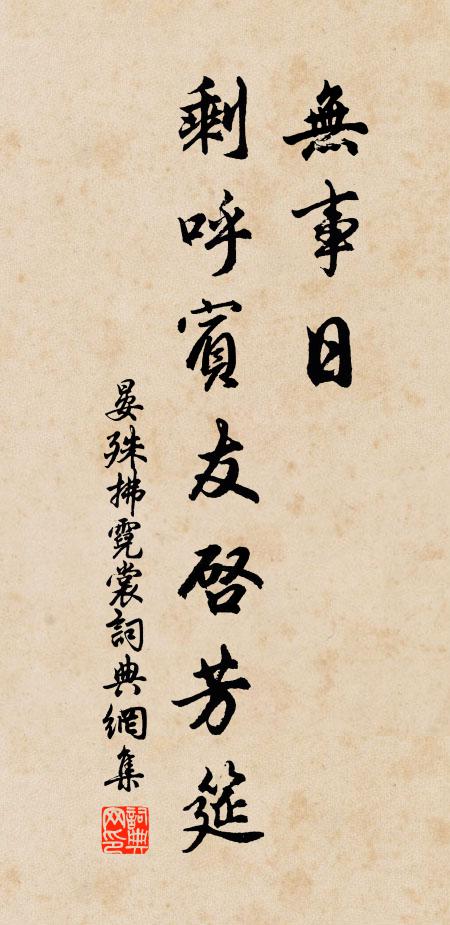 無事日
剩呼賓友啓芳筵
晏殊拂霓裳詞典網集
詞典网印